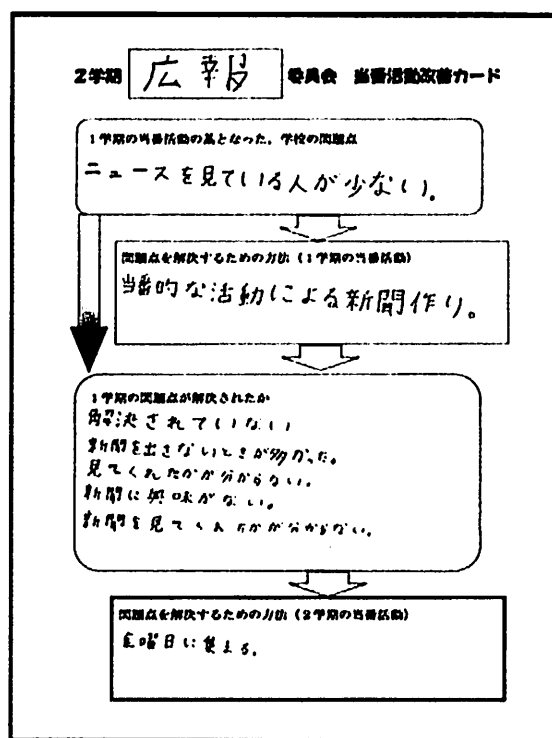 2学期 広報 委員会 当番活動改善カード
1学期の当番活動の基となった、学校の問題点
ニュースを見ている人が少ない。
問題点を解決するための方法（1学期の当番活動）
当番的な活動による新聞作り。
1学期の問題点が解決されたか
解決されていない
新聞を出さないときが多かった。
見てくれたかが分からない。
新聞に興味がない。
新聞を見てくれたかが分からない。
問題点を解決するための方法（2学期の当番活動）
金曜日に集まる。